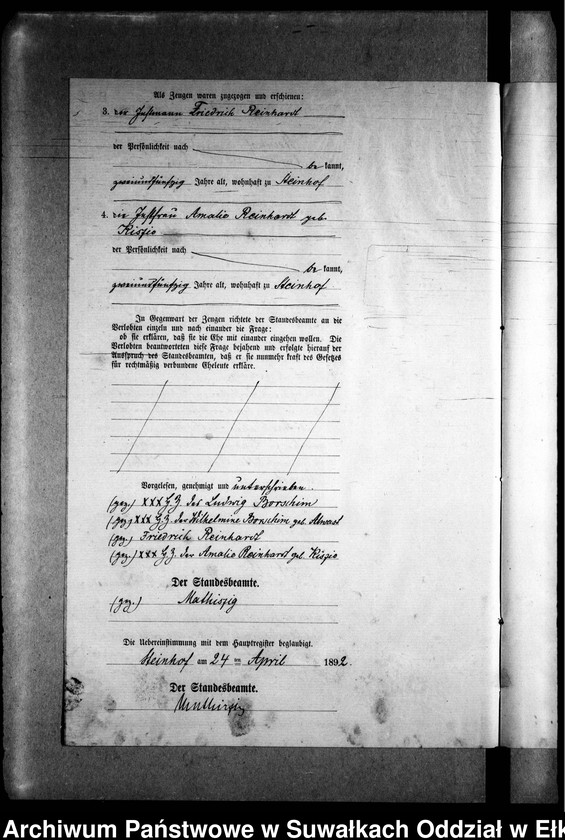 Als Zeugen waren zugezogen und erschienen:
3. der Instmann Friedrich Reinhardt
der Persönlichkeit nach
be kannt,
zweiundfünfzig Jahre alt, wohnhaft zu Steinhof
4. die Instfrau Amalie Reinhardt geb.
Kiszio
der Persönlichkeit nach
be kannt,
zweiundfünfzig Jahre alt, wohnhaft zu Steinhof
In Gegenwart der Zeugen richtete der Standesbeamte an die
Verlobten einzeln und nach einander die Frage:
ob sie erklären, daß sie die Ehe mit einander eingehen wollen. Die
Verlobten beantworteten diese Frage bejahend und erfolgte hierauf der
Ausspruch des Standesbeamten, daß er sie nunmehr kraft des Gesetzes
für rechtmäßig verbundene Eheleute erkläre.
Vorgelesen, genehmigt und unterschrieben.
(gez.) XXX H.Z. des Ludwig Borschim
(gez.) XXX H.Z. der Wilhelmine Borschim geb.
(gez.) Friedrich Reinhardt
(gez.) XXX H.Z. der Amalie Reinhardt geb. Kiszio
Der Standesbeamte.
(gez.) Mathiszig
Die Uebereinstimmung mit dem Hauptregister beglaubigt.
Steinhof am 24 ten April 1892.
Der Standesbeamte.
Archiwum Państwowe w Suwałkach Oddział w Ełk